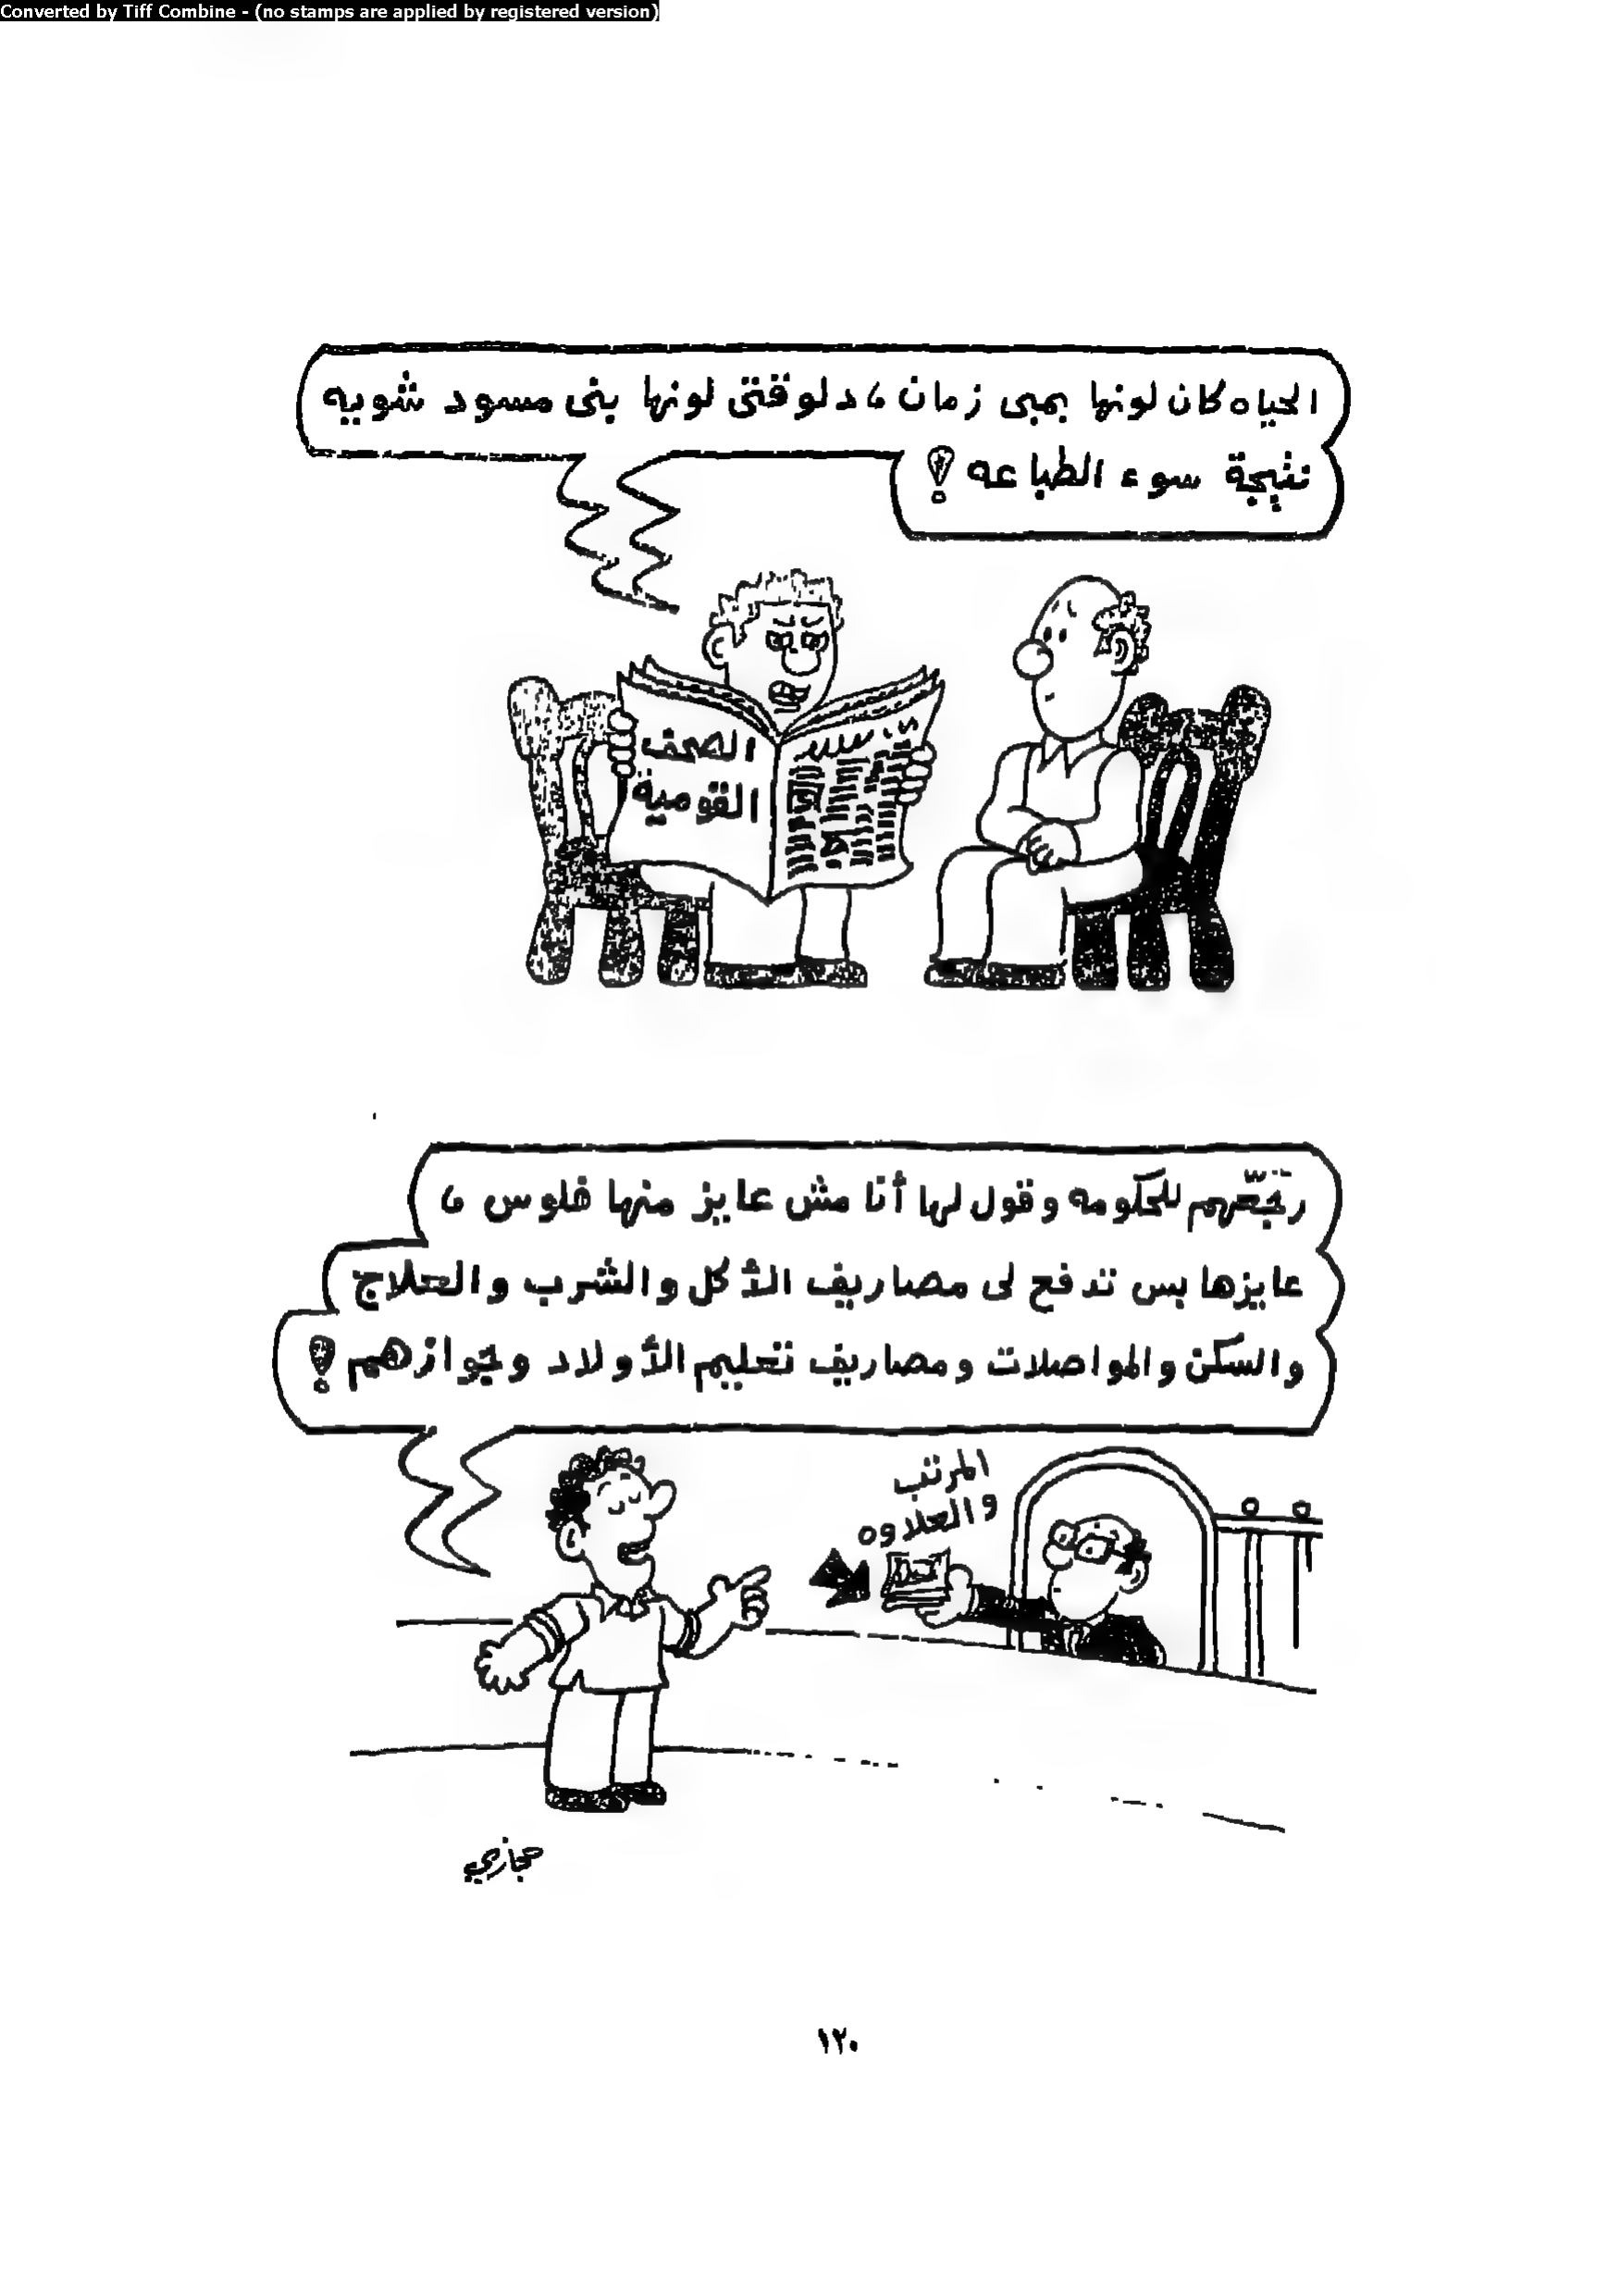 Converted by Tiff Combine - (no stamps are applied by registered version)
الحياه كان لونها بمبى زمان ، دلوقتى لونها بقى مسود شويه
نتيجة سوء الطباعه !
الصحف
القومية
رجّعهم للحكومه وقول لها أنا مش عايز منها فلوس ،
عايزها بس تدفع لى مصاريف الأكل والشرب والعلاج
والسكن والمواصلات ومصاريف تعليم الأولاد وجوازهم !
المرتب
والعلاوه
حجازي
١٢٠